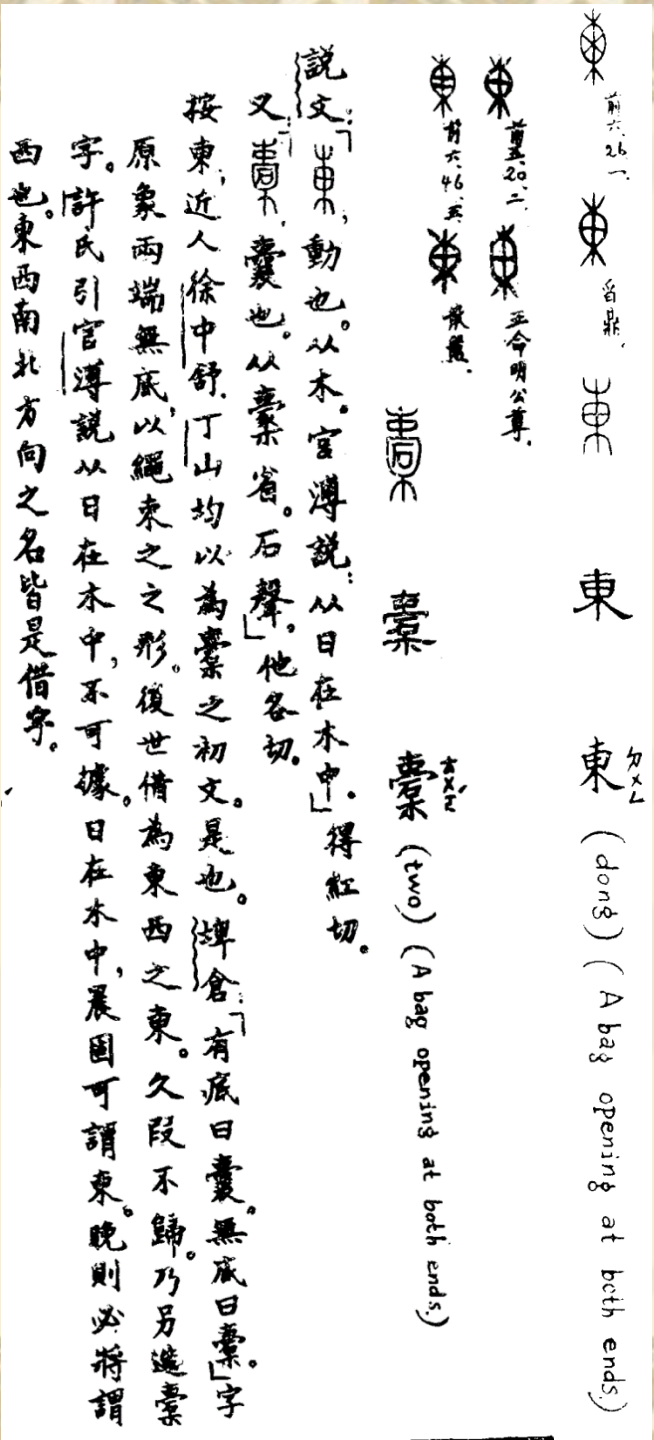 前六、26一、 𣆪鼎、 東 東ㄉㄨㄥ (dong) (A bag opening at both ends.)
前五、20、二、 正命明公尊、
前六、46、五 散盤、
橐 橐ㄊㄨㄛˊ (two) (A bag opening at both ends.)
説文:「東,動也。从木。官溥説:从日在木中」。得紅切。
又:「橐,囊也。从㯻省。石聲」,他各切。
按東,近人徐中舒、丁山均以為橐之初文。是也。埤倉:「有底曰囊。無底曰橐。」字
原象兩端無底,以繩束之之形。後世借為東西之東。久叚不歸。乃另造橐
字。許氏引官溥説从日在木中,不可據。日在木中,晨固可謂東。晚則必將謂
西也。東西南北方向之名皆是借字。